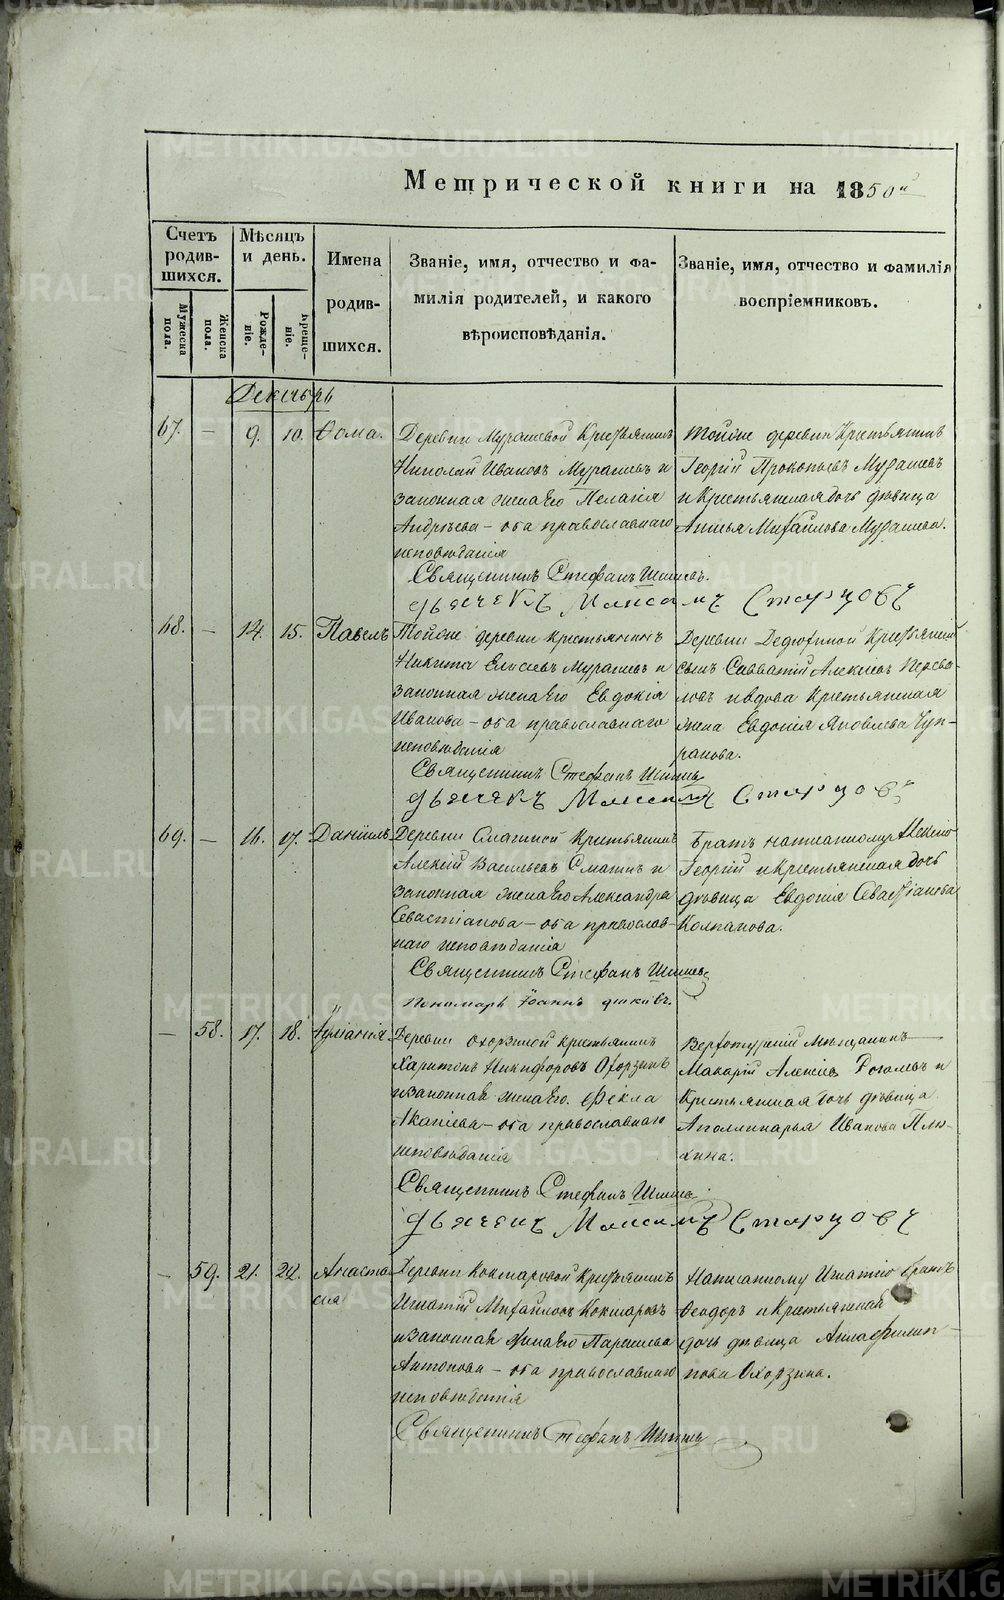 METRIKI.GASO-URAL.RU
Метрической книги на 1850й
Счетъ родив-шихся.
Мужеска пола.
Женска пола.
Мѣсяцъ и день.
Рожде-ніе.
Креще-ніе.
Имена родив-шихся.
Званіе, имя, отчество и фа-
милія родителей, и какого
вѣроисповѣданія.
Званіе, имя, отчество и фамилія
воспріемниковъ.
Декабрь
67. — 9. 10. Ѳома.
Деревни Мурашевой Крестьянинъ
Николай Ивановъ Мурашевъ и
законная жена его Пелагія
Андрѣева — оба православнаго
исповѣданія
Тойже деревни Крестьянинъ
Георгій Прокопьевъ Мурашевъ
и Крестьянская дочь дѣвица
Михайлова Мурашева.
Священникъ Стефанъ
дьячекъ Максимъ Старцовъ
68. — 14. 15. Павелъ
Тойже деревни крестьянинъ
Никита Елисеевъ Мурашевъ и
законная жена его Евдокія
Иванова — оба православнаго
исповѣданія
Деревни Крестьянскій
сынъ Савватій Алексѣевъ Перева-
ловъ и вдова Крестьянская
жена Евдокія Яковлева Чуп-
ракова.
Священникъ Стефанъ
дьячекъ Максимъ Старцовъ
69. — 16. 17. Даніилъ
Деревни Крестьянинъ
Алексій Васильевъ и
законная жена его Александра
Севастіанова — оба православ-
наго исповѣданія
Братъ написанному Алексію
Георгій и Крестьянская дочь
дѣвица Евдокія Севастіанова
Колпакова.
Священникъ Стефанъ
Пономарь Іоаннъ
— 58. 17. 18. Іуліанія
Деревни Охорзиной крестьянинъ
Харитонъ Никифоровъ Охорзинъ
и законная жена его Ѳекла
— оба православнаго
исповѣданія
Верхотурскій Мѣщанинъ
Макарій Алексѣевъ и
Крестьянская дочь дѣвица
Аполлинарья Иванова Плю-
хина.
Священникъ Стефанъ
дьячекъ Максимъ Старцовъ
— 59. 21. 22. Анаста-
сія
Деревни Кокшаровой Крестьянинъ
Игнатій Михайловъ Кокшаровъ
и законная жена его Параскева
Антонова — оба православнаго
исповѣданія
Написанному Игнатію братъ
Ѳеодоръ и Крестьянская
дочь дѣвица Анна Филип-
пова Охорзина.
Священникъ Стефанъ